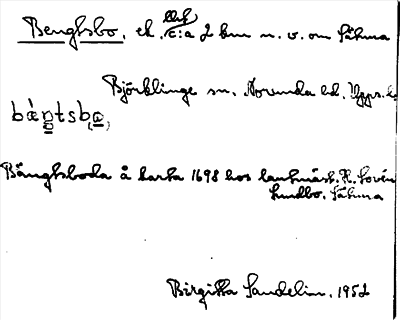 Bengtsbo, ek. c:a 2 km n. v. om Sätuna
Björklinge sn. Norunda hd. Upps. l.
bæ̀ŋtsbo̤
Bängtsboda å karta 1698 hos lantmät. H. Lovén
Lundbo, Sätuna
Birgitta Sandelin. 1952